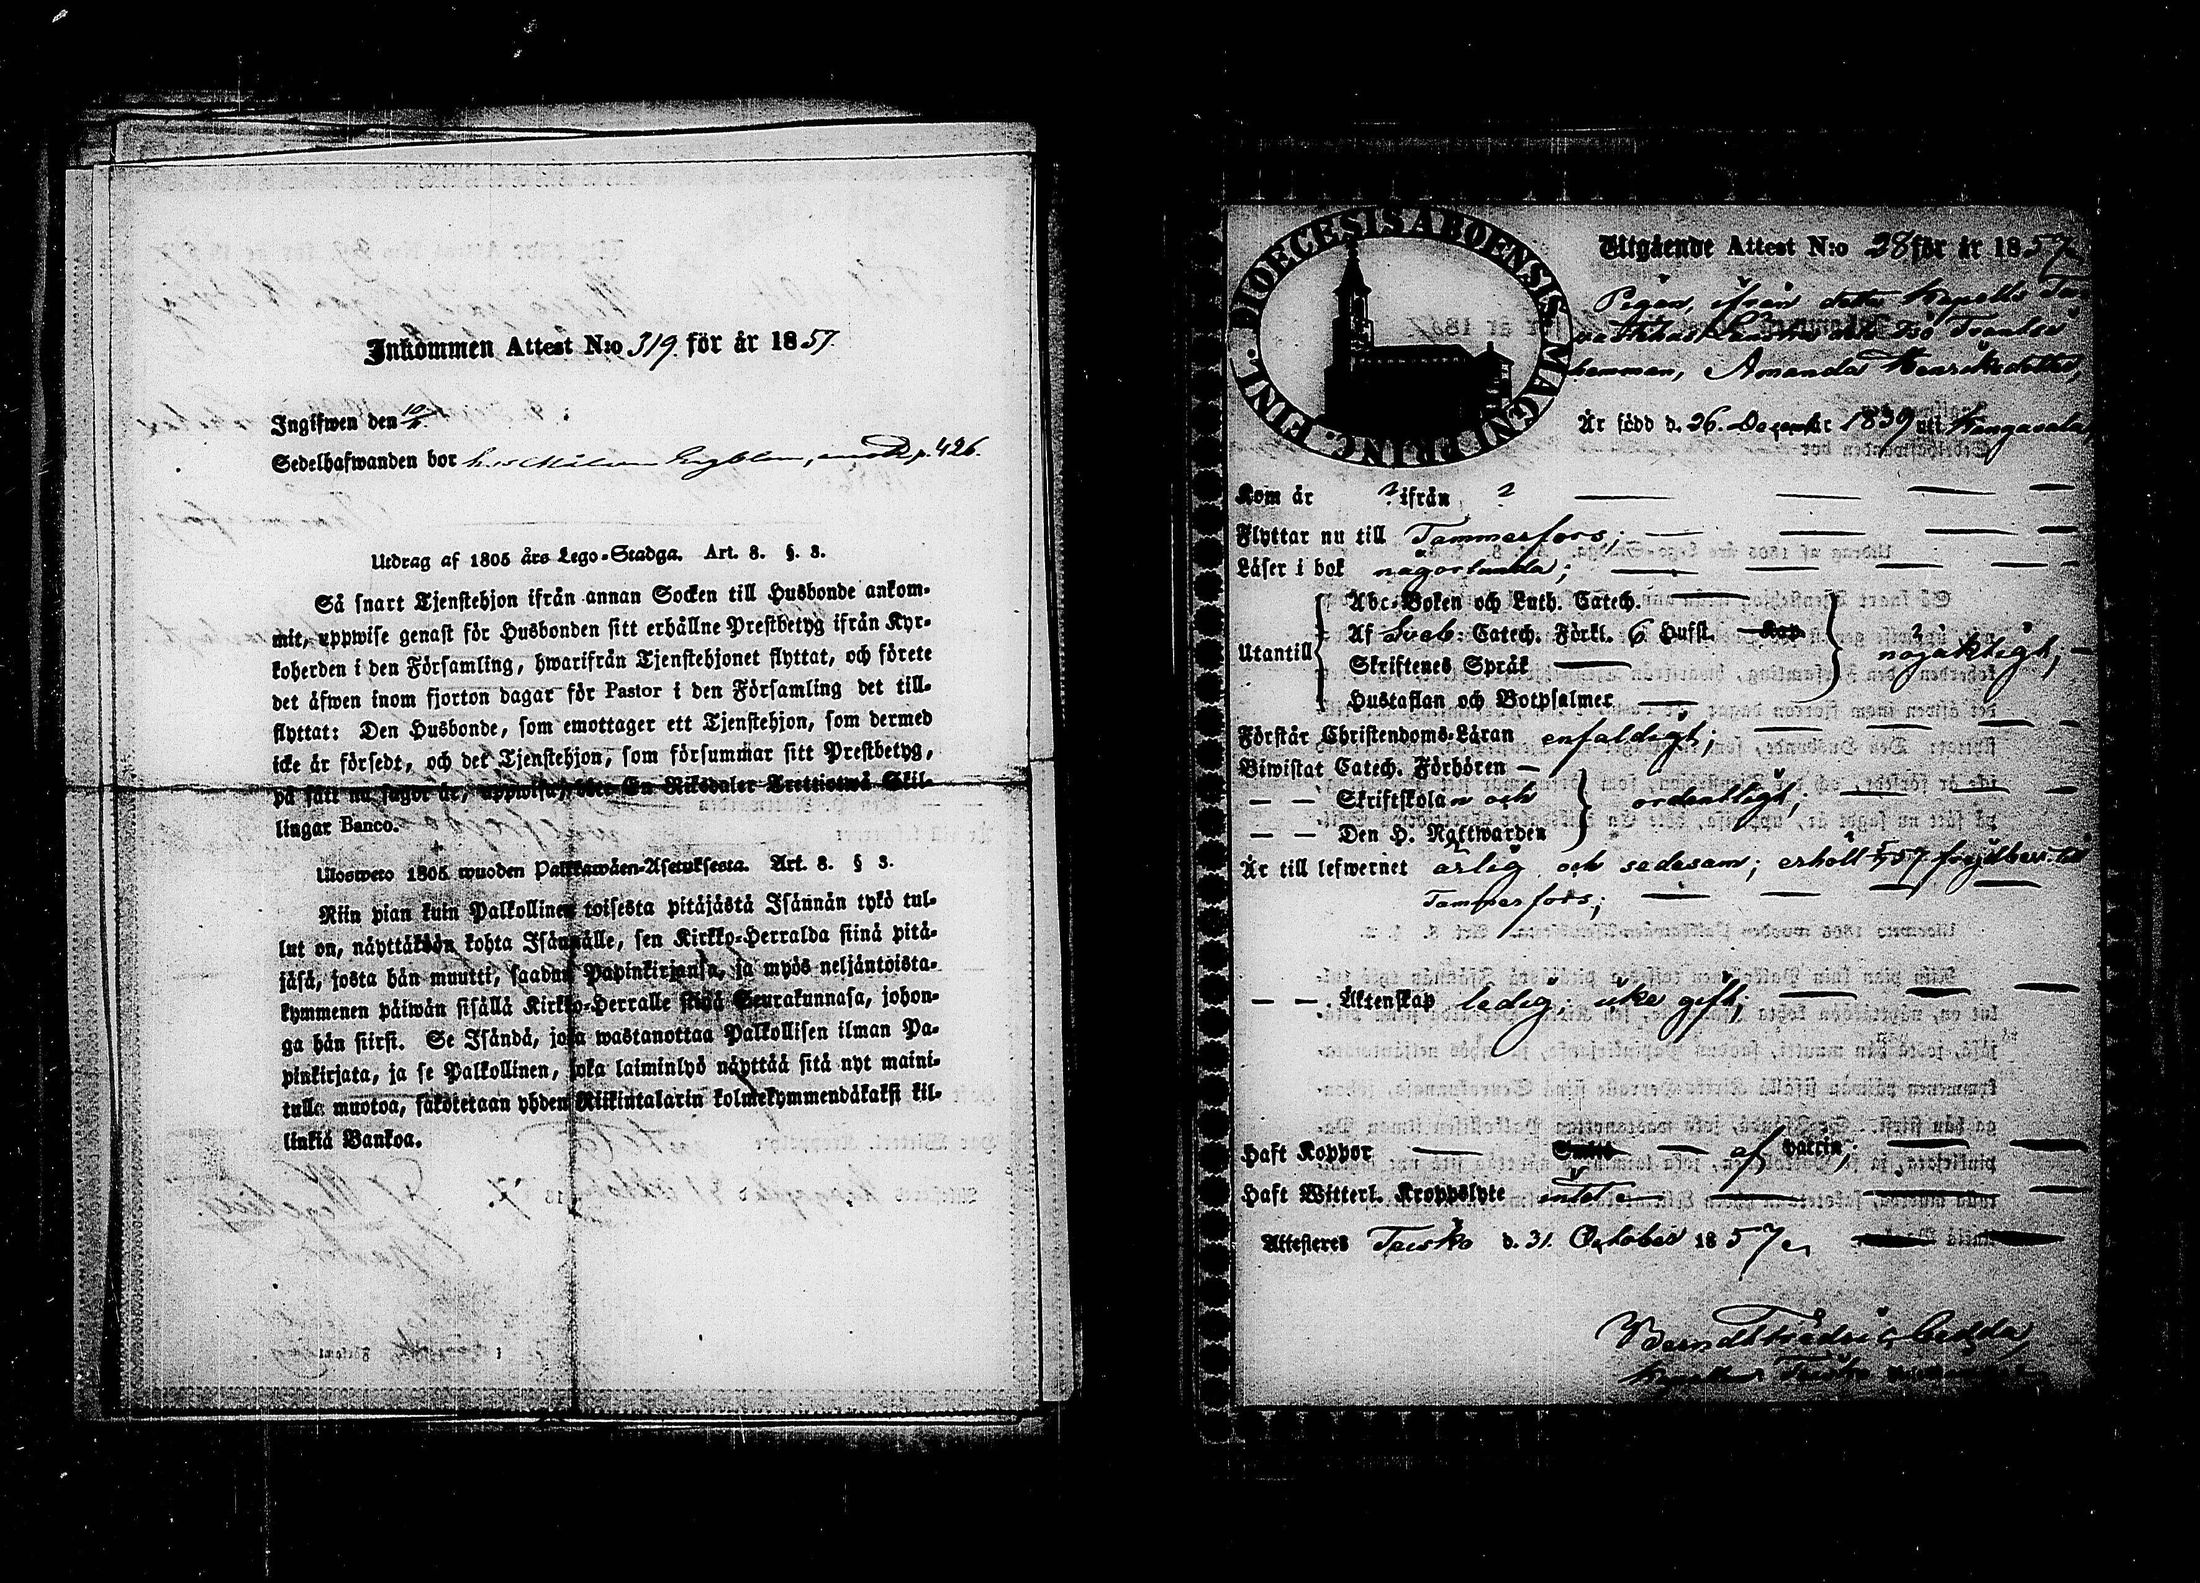 Inkommen Attest N:o 319. för år 1857
Ingifwen den 10/
Sedelhafwanden bor hos p. 426.
Utdrag af 1805 års Lego-Stadga. Art. 8. §. 3.
Så snart Tjenstehjon ifrån annan Socken till Husbonde ankom-
mit, uppwise genast för Husbonden sitt erhållne Prestbetyg ifrån Kyr-
koherden i den Församling, hwarifrån Tjenstehjonet flyttat, och förete
det äfwen inom fjorton dagar för Pastor i den Församling det till-
flyttat: Den Husbonde, som emottager ett Tjenstehjon, som dermed
icke är försedt, och det Tjenstehjon, som försummar sitt Prestbetyg,
på sätt nu sagdt är, uppwisa, böte En Riksdaler Trettiotwå Skil-
lingar Banco.
Ulosweto 1805 wuoden Palkkawäen-Asetuksesta. Art. 8. § 3.
Niin pian kuin Palkollinen toisesta pitäjästä Isännän tykö tul-
lut on, näyttäköön kohta Isännälle, sen Kirkko-Herralda siinä pitä-
jäsä, josta hän muutti, saadun Papinkirjansa, ja myös neljäntoista-
kymmenen päiwän sisällä Kirkko-Herralle siinä Seurakunnasa, johon-
ga hän siirsi. Se Isändä, joka wastanottaa Palkollisen ilman Pa-
pinkirjata, ja se Palkollinen, joka laiminlyö näyttää sitä nyt maini-
tulla muotoa, sakotetaan yhden Riikintalarin kolmekymmendäkaksi kil-
linkiä Bankoa.
DIOECESIS ABOENSIS MAGNI PRINC. FINL.
Utgående Attest N:o 28 för år 1857
Pigan, ifrån detta Kapells
hemman, Amanda Henriksdotter,
Är född d. 26. December 1839 uti Kangasala,
Kom år ? ifrån ?
Flyttar nu till Tammerfors;
Läser i bok någorlunda;
Abc-Boken och Luth. Catech.
Utantill Af Sveb: Catech. Förkl. 6 Hufst. Kap nöjaktligt,
Skriftenes Språk
Hustaflan och Botpsalmer
Förstår Christendoms-Läran enfaldigt;
Biwistat Catech. Förhören
— — Skriftskolan och ordentligt;
— — Den H. Nattwarden
Är till lefwernet ärlig och sedesam; erhöll 57 till
Tammerfors;
— — Äktenskap ledig; icke gift;
Haft Koppor af naturen;
Haft Witterl. Kroppslyte intet
Attesteres Teisko d. 31. October 1857
Berndt Fredric
Teisko